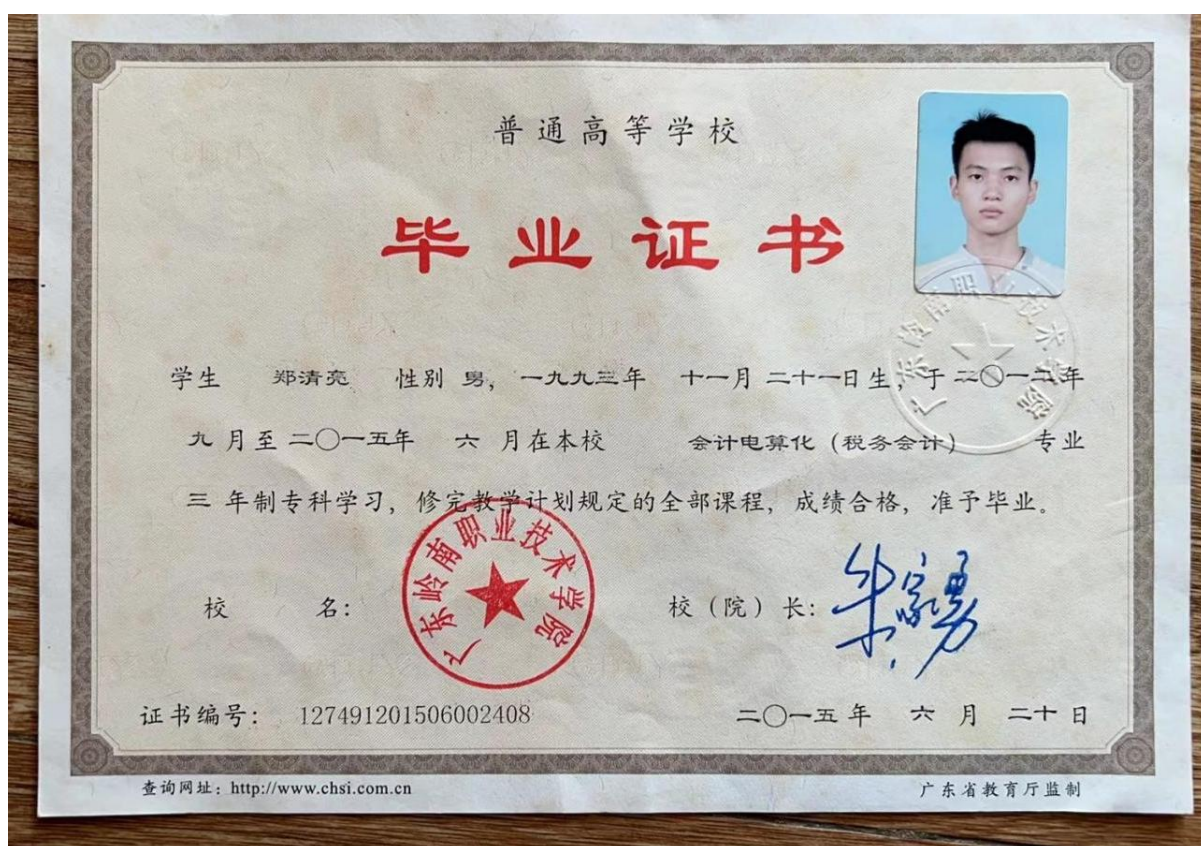 普通高等学校
毕业证书
学生 郑清亮 性别 男，一九九三年 十一月 二十一日生，于 二〇一二年
九 月至 二〇一五年 六 月在本校 会计电算化（税务会计） 专业
三 年制专科学习，修完教学计划规定的全部课程，成绩合格，准予毕业。
广东岭南职业技术学院
广东岭南职业技术学院
校 名： 校（院）长：
证书编号： 127491201506002408 二〇一五年 六 月 二十 日
查询网址：http://www.chsi.com.cn 广东省教育厅监制